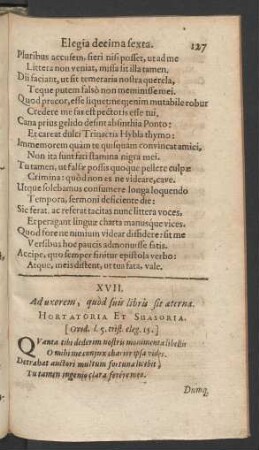 Elegia decima sexta. 127
Pluribus accusem, fieri nisi posset, ut ad me
Littera non veniat, missa sit illa tamen.
Dii faciant, ut sit temeraria nostra querela,
Teque putem falsò non meminisse mei.
Quod precor, esse liquet: neq; enim mutabile robur
Credere me fas est pectoris esse tui,
Cana prius gelido desint absinthia Ponto:
Et careat dulci Trinacris Hybla thymo:
Immemorem quàm te quisquam convincat amici,
Non ita sunt fati stamina nigra mei.
Tu tamen, ut falsæ possis quoque pellere culpæ
Crimina: quòd non es ne videare, cave.
Utque solebamus consumere longa loquendo
Tempora, sermoni deficiente die:
Sic ferat. ac referat tacitas nunc littera voces,
Et peragant linguæ charta manusque vices.
Quod fore ne nimium videar diffidere: sit me
Versibus hoc paucis admonuisse satis.
Accipe, quo semper finitur epistola verbo:
Atque, meis distent, ut tua fata, vale.
XVII.
Ad uxorem, quòd suis libris sit æterna.
HORTATORIA ET SUASORIA.
[Ovid. l. 5. trist. eleg. 15.]
QVanta tibi dederim nostris monimenta libellis
O mihi me conjux charior ipsa vides.
Detrahat auctori multum fortuna licebit,
Tu tamen ingenio clara ferêre meo.
Dumq,